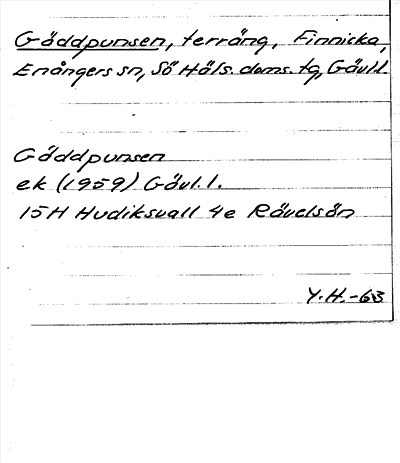 Gäddpunsen, terräng, Finnicka,
Enångers sn, Sö Häls. doms. tg, Gävl.l.
Gäddpunsen
ek (1959) Gävl.l.
15H Hudiksvall 4e Rävelsön
Y.H.-63